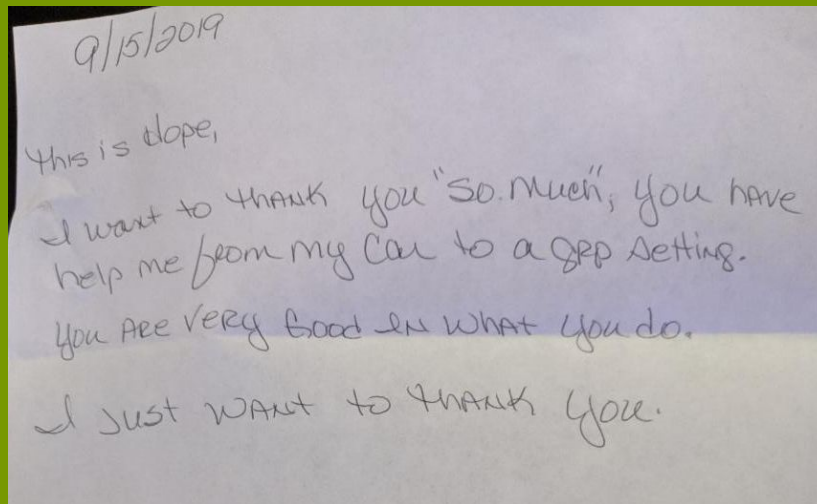 9/15/2019
This is dope,
I want to thank you "so much", you have
help me from my car to a grp setting.
You are very good in what you do.
I just want to thank you.